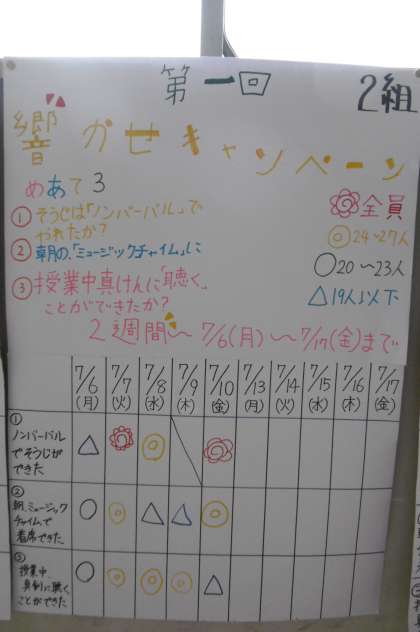 第一回 2組
響かせキャンペーン
めあて3
①そうじは「ノンバーバル」で
やれたか?
②朝の、「ミュージックチャイム」に
③授業中真けんに「聴く」
ことができたか?
全員
◎24〜27人
○20〜23人
△19人以下
2週間〜7/6(月)〜7/17(金)まで
7/6(月) 7/7(火) 7/8(水) 7/9(木) 7/10(金) 7/13(月) 7/14(火) 7/15(水) 7/16(木) 7/17(金)
①
ノンバーバル
でそうじが
できた
△ ◎ 
②
朝、ミュージック
チャイムで
着席できた
○ ◎ △ △ ◎
③
授業中、
真剣に聴く
ことができた
○ ◎ ◎ ◎ △